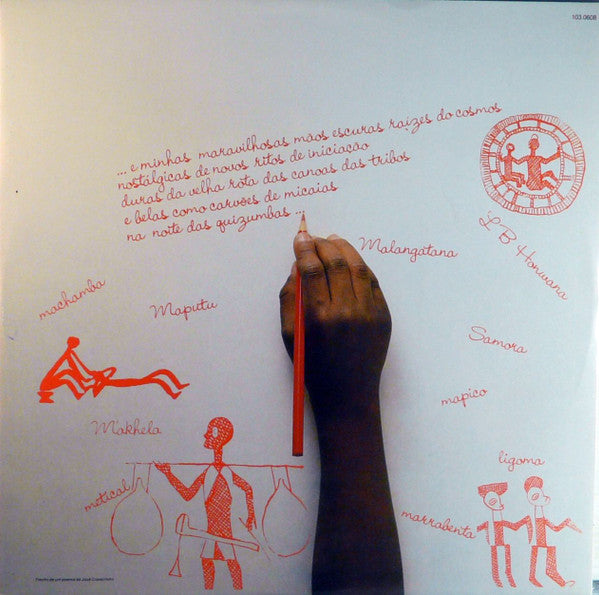 103.0608
... e minhas maravilhosas mãos escuras raízes do cosmos
nostálgicas de novos ritos de iniciação
duras da velha rota das canoas das tribos
e belas como carvões de micaias
na noite das quizumbas ...
Malangatana
L B Honwana
machamba
Maputu
Samora
mapico
Makhela
ligoma
metical
marrabenta
de um poema de José Craveirinha